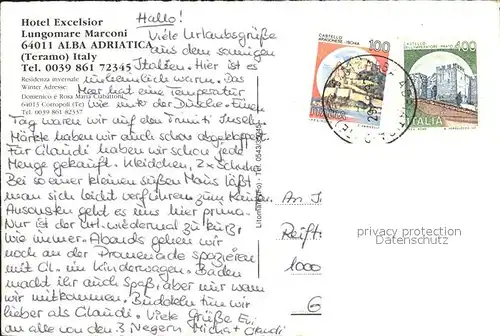 Hotel Excelsior
Lungomare Marconi
64011 ALBA ADRIATICA
(Teramo) Italy
Tel. 0039 861 72345
Residenza invernale
Winter Adresse:
Domenico e Rosa Maria Ciabattoni
64013 Corropoli (Te) Italy
Tel. 0039 861 82337
Hallo!
Viele Urlaubsgrüße
aus dem sonnigen
Italien. Hier ist es
unheimlich warm. Das
Meer hat eine Temperatur
wie unter der Dusche. Einen
Tag waren wir auf den Tremiti Inseln.
Märkte haben wir auch schon abgeklappert.
Für Claudi haben wir schon jede
Menge gekauft. Kleidchen, 2x Schuhe
Bei so einer kleinen süßen Maus läßt
man sich leicht verführen zum Kaufen.
Ansonsten geht es uns hier prima.
Nur ist der Url. wiedermal zu kurz,
wie immer. Abends gehen wir
noch an der Promenade spazieren
mit Cl. im Kinderwagen. Baden
macht ihr auch Spaß, aber nur wenn
wir mitkommen. Buddeln tun wir
lieber als Claudi. Viele Grüße
an alle von den 3
CASTELLO
ARAGONESE - ISCHIA
100
400
ITALIA
An
Reift
1000
6
privacy protection
Datenschutz